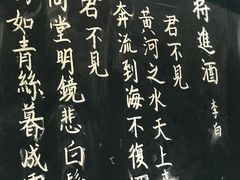 將進酒 李白
君不見
黃河之水天上
奔流到海不復
君不見
堂明鏡悲白
如青絲暮成